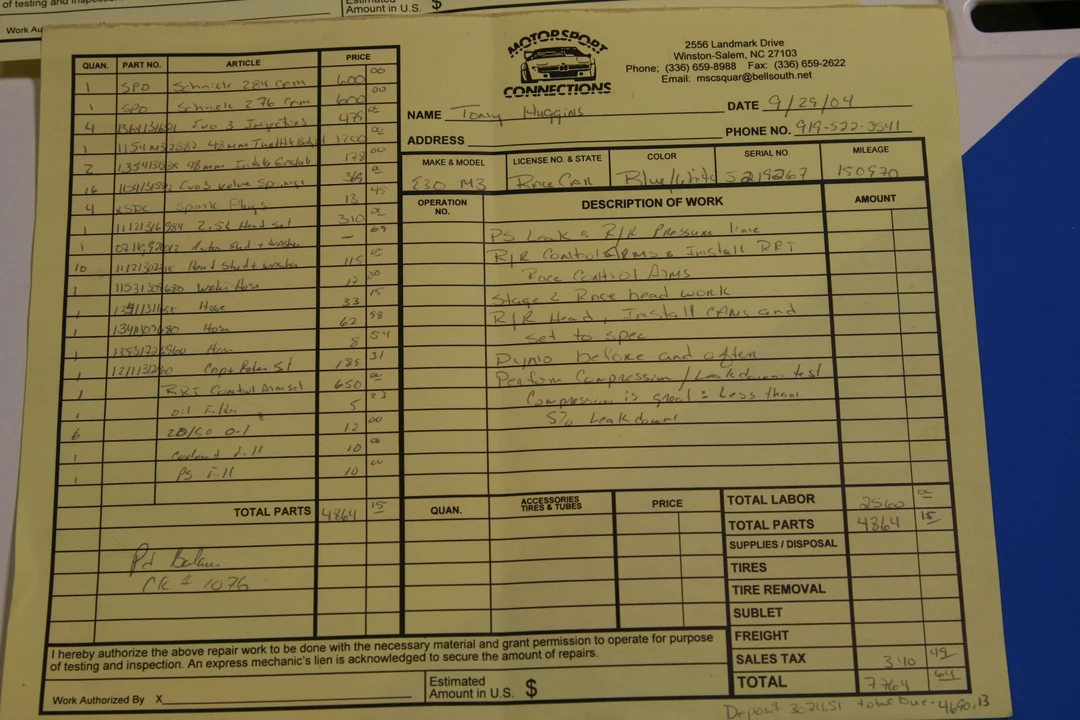 of testing and inspection
Estimated
Amount in U.S. $
Work Au
MOTORSPORT
CONNECTIONS
2556 Landmark Drive
Winston-Salem, NC 27103
Phone; (336) 659-8988 Fax: (336) 659-2622
Email: mscsquar@bellsouth.net
NAME Tony Huggins DATE 9/29/04
ADDRESS PHONE NO. 919-522-3541
MAKE & MODEL LICENSE NO. & STATE COLOR SERIAL NO. MILEAGE
E30 M3 Race Car Blue/White 5219267 150970
QUAN. PART NO. ARTICLE PRICE
1 SPO Schrick 284 cam 600 00
1 SPO Schrick 276 cam 600 00
4 Evo 3 Injectors
1 48mm 1200
2 48mm Intake 178 00
16 Evo 3 Valve Springs
4 Spark Plugs 13 45
1 2.5L Head Set 310
1 + washer — 69
10 Head Stud + washer 115
1 Water Hose 17
1 Hose 33 15
1 Hose 62 98
1 Hose 8 54
1 Cap + Rotor St 185 31
1 RRT Control Arm set 650
1 oil filter 5 23
6 20/50 Oil 12 00
1 Coolant fill 10 00
1 PS fill 10
TOTAL PARTS 4864 15
Pd Balance
CK # 1076
OPERATION NO. DESCRIPTION OF WORK AMOUNT
PS Leak & R/R Pressure line
R/R Control Arms & Install RRT
Race Control Arms
Stage 2 Race head work
R/R Head, Install CAMs and
set to spec
Dyno before and after
Perform Compression / Leakdown test
Compression is great : Less than
5% Leakdown
QUAN. ACCESSORIES TIRES & TUBES PRICE
TOTAL LABOR 2560
TOTAL PARTS 4864 15
SUPPLIES / DISPOSAL
TIRES
TIRE REMOVAL
SUBLET
FREIGHT
SALES TAX 340 49
TOTAL 7764 64
I hereby authorize the above repair work to be done with the necessary material and grant permission to operate for purpose
of testing and inspection. An express mechanic's lien is acknowledged to secure the amount of repairs.
Work Authorized By X
Estimated
Amount in U.S. $
Deposit Total Due - 4690.13